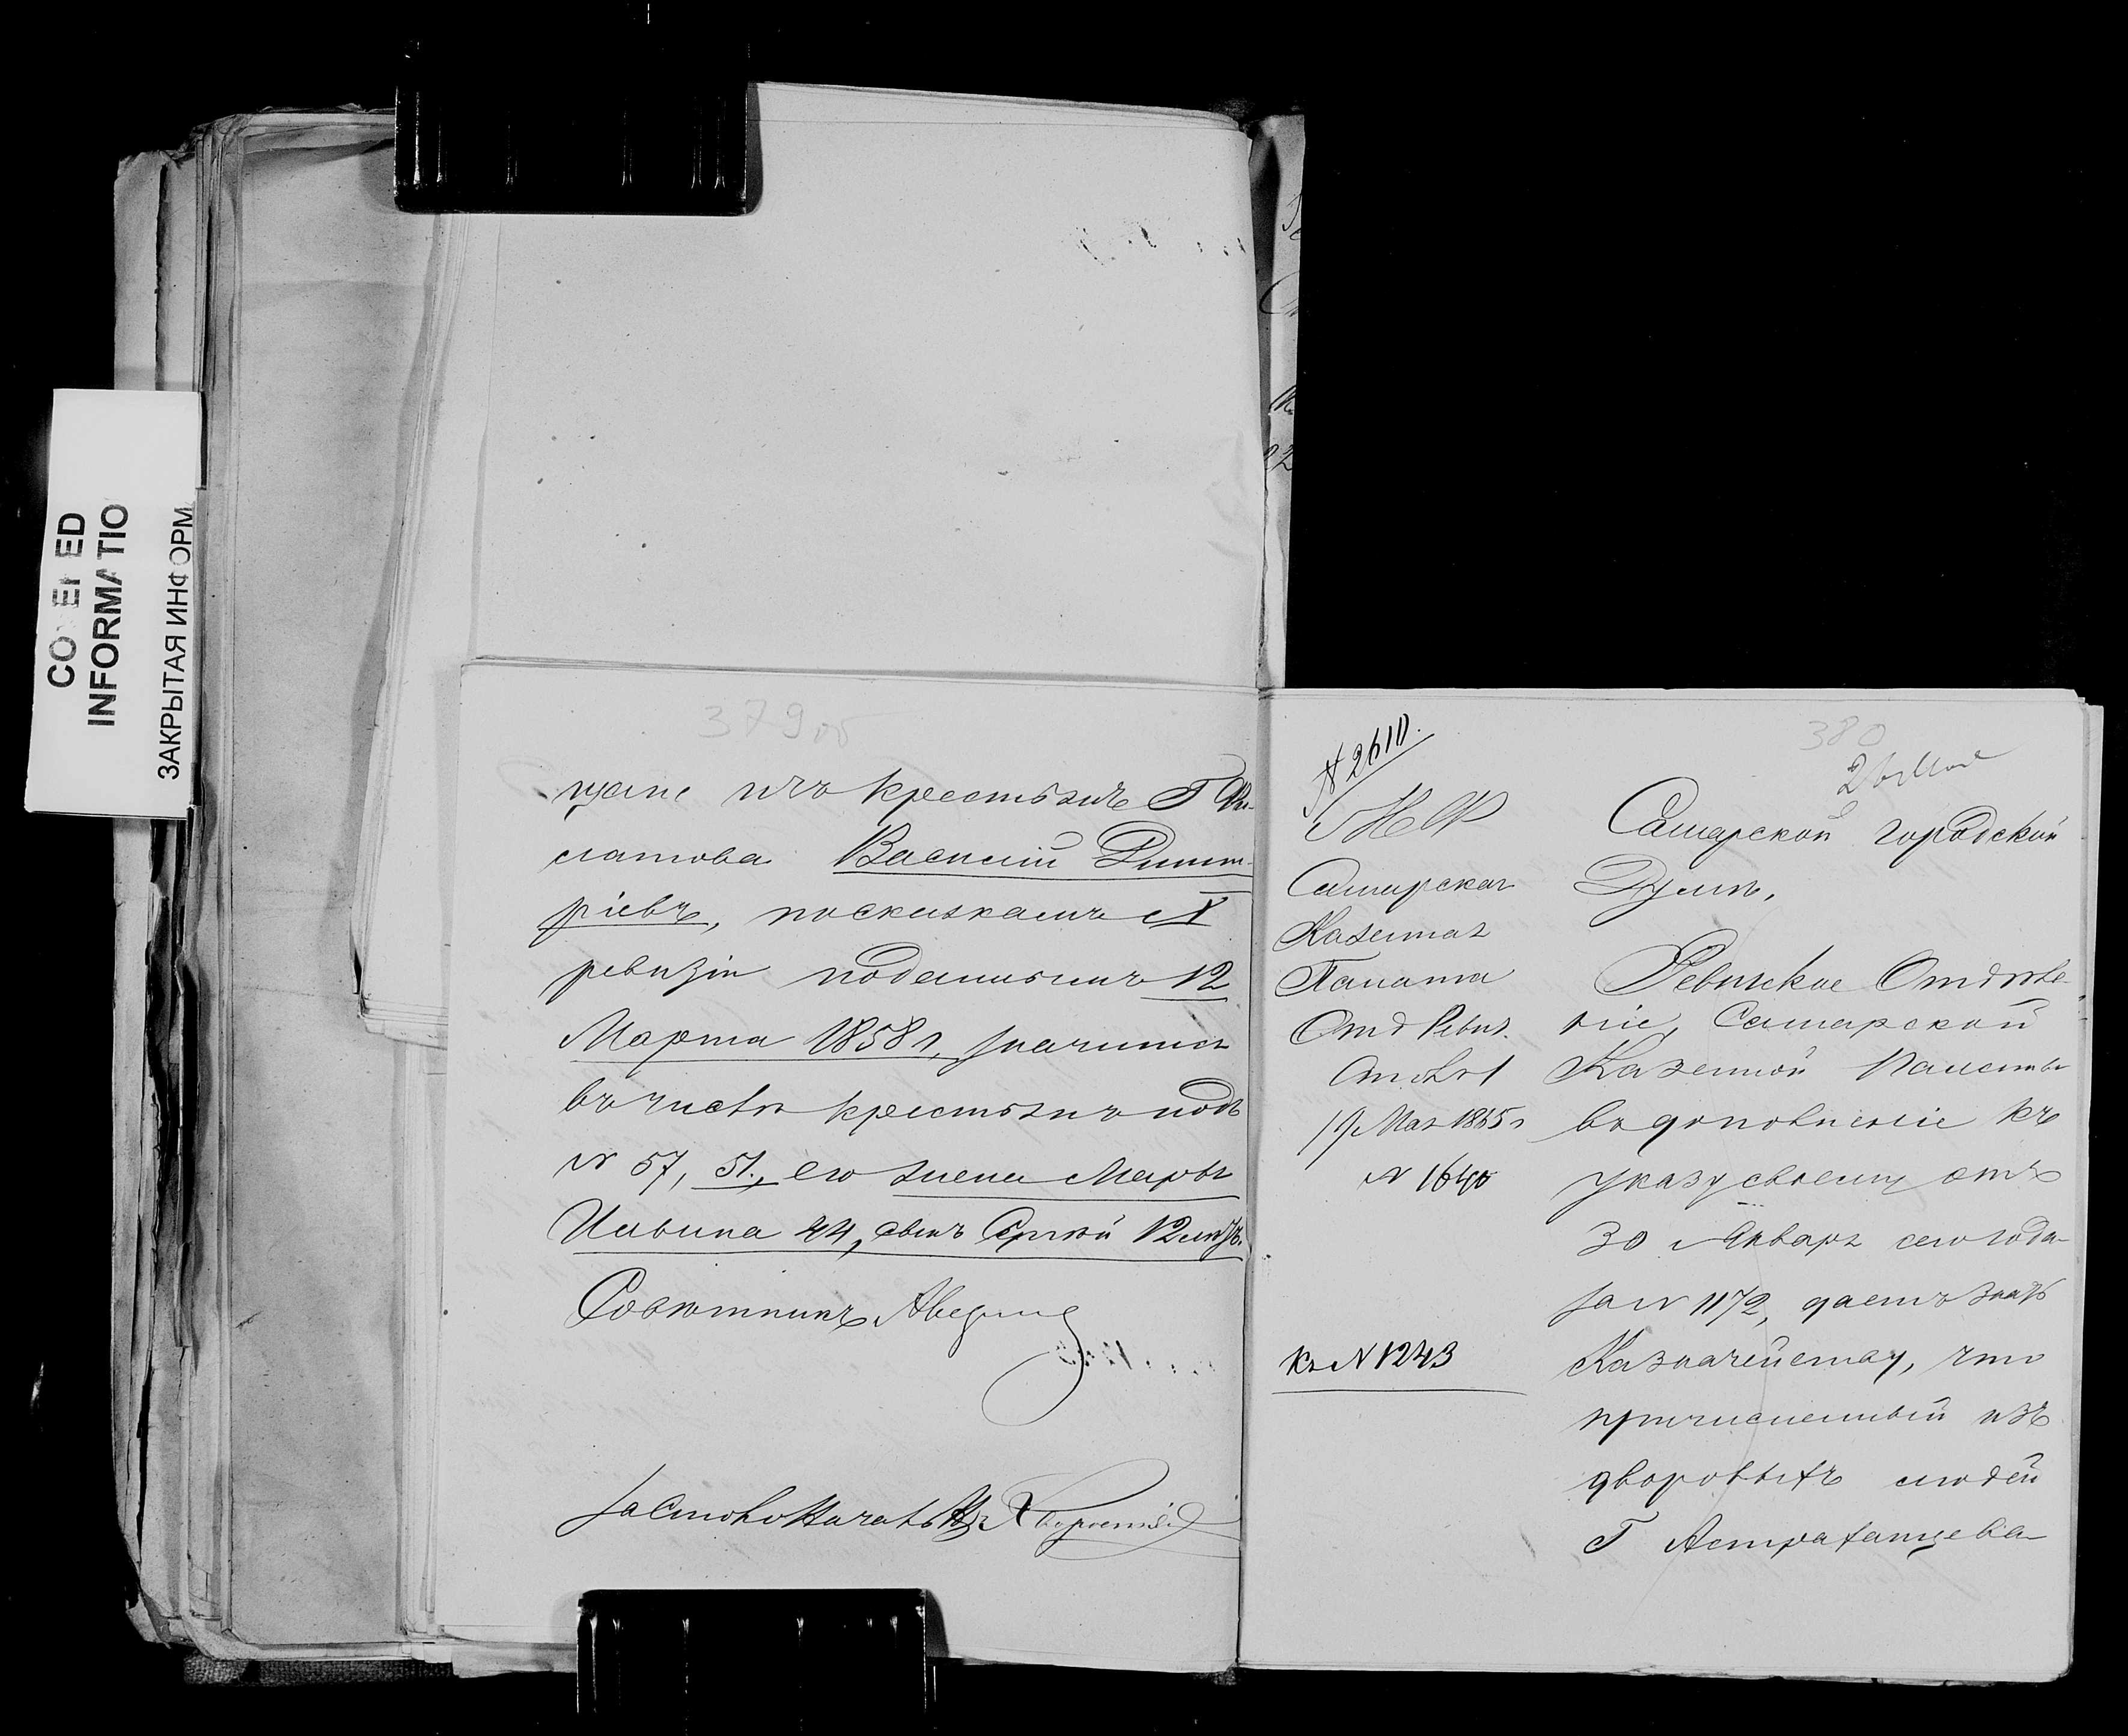 CO  ED
INFORMATIO
ЗАКРЫТАЯ ИНФОРМ
379об
щане изъ крестьянъ Г Фи-
латова Василій Димит-
ріевъ, по сказкамъ X
ревизіи поданнымъ 12
Марта 1858 г, значится
въ числѣ крестьянъ подъ
№ 57, 51, его жена Марѳа
Савина 44, сынъ Сергѣй 12 мѣс.
Совѣтникъ
За Столоначальн.
№ 2610.
380
М Ф
Самарская
Казенная
Палата
Отд Ревиз.
Столъ 1
19 Мая 1865 г
№ 1640
къ № 1243
Самарской городской
Думѣ,
Ревизское Отдѣле-
ніе, Самарской
Казенной Палаты
въ дополненіе къ
указу своему отъ
30 Января сего года
за № 1172, даетъ знать
Казначейству, что
причисленный изъ
дворовыхъ людей
Г Астраханцева